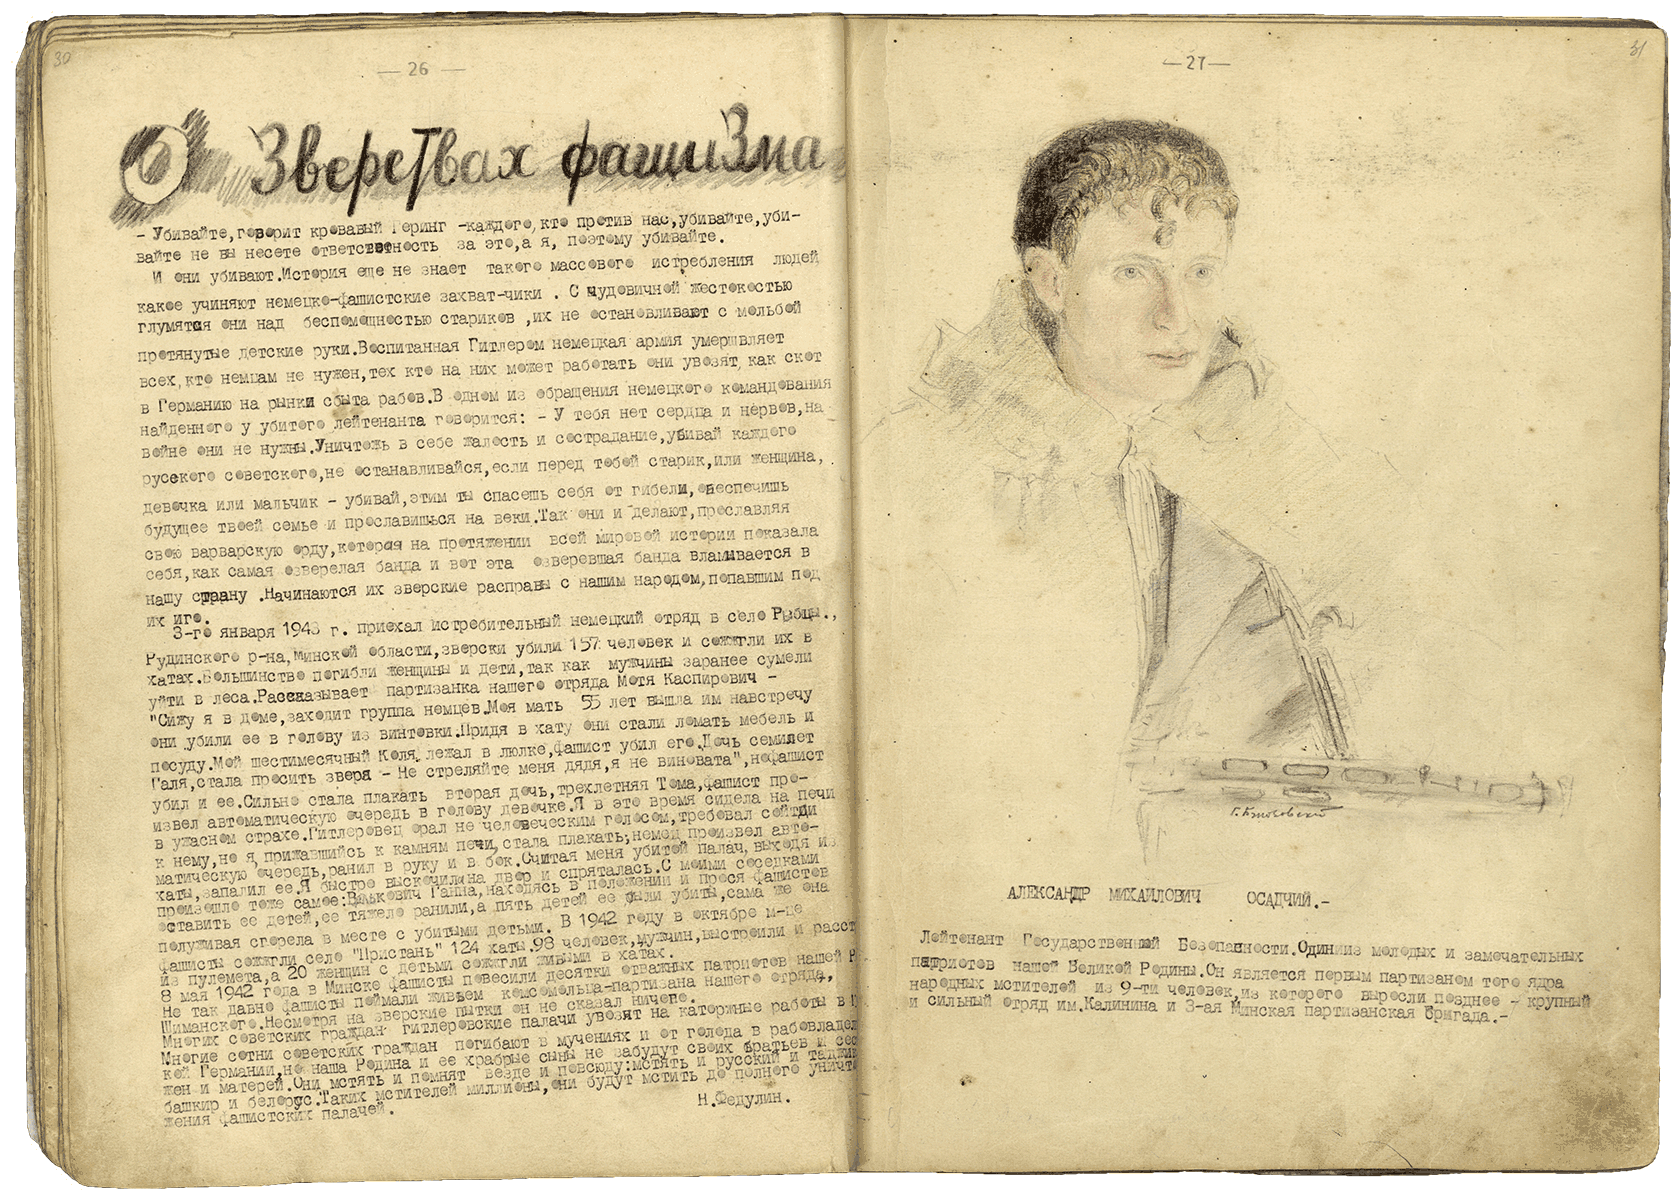 30
— 26 —
О Зверствах фашизма
- Убивайте,говорит кровавый Геринг -каждого,кто против нас,убивайте,уби-
вайте не вы несете ответсвтность за это,а я, поэтому убивайте.
И они убивают.История еще не знает такого массового истребления людей
какое учиняют немецко-фашистские захват-чики . С чудовичной жестокостью
глумятся они над беспомощностью стариков ,их не остановливают с мольбой
протянутые детские руки.Воспитанная Гитлером немецкая армия умерщвляет
всех,кто немцам не нужен,тех кто на них может работать они увозят как скот
в Германию на рынки сбыта рабов.В одном из обращения немецкого командования
найденного у убитого лейтенанта говорится: - У тебя нет сердца и нервов,на
войне они не нужны.Уничтожь в себе жалость и сострадание,убивай каждого
русского советского,не останавливайся,если перед тобой старик,или женщина,
девочка или мальчик - убивай,этим ты спасешь себя от гибели,обеспечишь
будущее твоей семье и прославишься на веки.Так они и делают,прославляя
свою варварскую орду,которая на протяжении всей мировой истории показала
себя,как самая озверелая банда и вот эта озверевшая банда вламывается в
нашу страану .Начинаются их зверские расправы с нашим народом,попавшим под
их иго.
3-го января 1943 г. приехал истребительный немецкий отряд в село Рябцы.,
Рудинского р-на,Минской области,зверски убили 157 человек и сожжгли их в
хатах.Большинство погибли женщины и дети,так как мужчины заранее сумели
уйти в леса.Рассказывает партизанка нашего отряда Мотя Каспирович -
"Сижу я в доме,заходит группа немцев.Моя мать 55 лет вышла им навстречу
они убили ее в голову из винтовки.Придя в хату они стали ломать мебель и
посуду.Мой шестимесячный Коля лежал в люлке,фашист убил его.Дочь семилет
Галя,стала просить зверя - Не стреляйте меня дядя,я не виновата",нофашист
убил и ее.Сильно стала плакать вторая дочь,трехлетняя Тома,фашист про-
извел автоматическую очередь в голову девочке.Я в это время сидела на печи
в ужасном страхе.Гитлеровец орал не человеческим голосом,требовал сойтди
к нему,но я прижавшийсь к камням печи,стала плакать;немец произвел авто-
матическую очередь,ранил в руку и в бок.Считая меня убитой палач,выходя из
хаты,запалил ее.Я быстро выскочила на двор и спряталась.С моими соседками
произошло тоже самое:Валькович Ганна,находясь в положении и прося фашистов
оставить ее детей,ее тяжело ранили,а пять детей ее были убиты,сама же она
полуживая сгорела в месте с убитыми детьми. В 1942 году в октябре м-це
фашисты сожжгли село "Пристань" 124 хаты.98 человек,мужчин,выстроили и расст
из пулемета,а 20 женщин с детьми сожжгли живыми в хатах.
8 мая 1942 года в Минске фашисты повесили десятки отважных патриотов нашей Р
Не так давно фашисты поймали живьем комсомольца-партизана нашего отряда,
Шиманского.Несмотря на зверские пытки он не сказал ничего.
Многих советских граждан гитлеровские палачи увозят на каторжные работы в Г
Многие сотни советских граждан погибают в мучениях и от голода в рабовладел
кой Германии,но наша Родина и ее храбрые сыны не забудут своих братьев и сес
жен и матерей.Они мстять и помнят везде и повсюду:мстять и русский и таджик
башкир и белорус.Таких мстителей миллионы,они будут мстить до полного уничто
жения фашистских палачей.
Н.Федулин.
31
—27—
АЛЕКСАНДР МИХАИЛОВИЧ ОСАДЧИЙ.-
Лейтенант Государственной Безопасности.Одиниз молодых и замечательных
патриотов нашей Великой Родины.Он является первым партизаном того ядра
народных мстителей из 9-ти человек,из которого выросли позднее - крупный
и сильный отряд им.Калинина и 3-ая Минская партизанская бригада.-